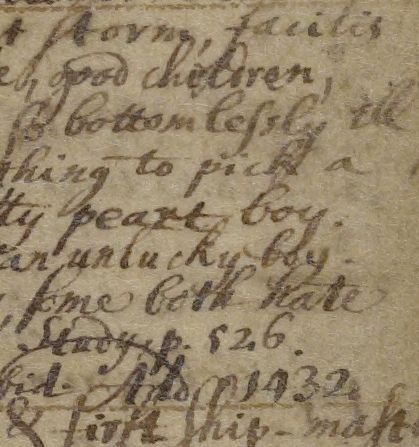 t storm, facilis
e, good children,
so bottomlessly ill
thing to pick a
tty peart boy.
an unlucky boy.
, some both hate
Study, p. 526.
bid. And p 1432.
& first ship-mast